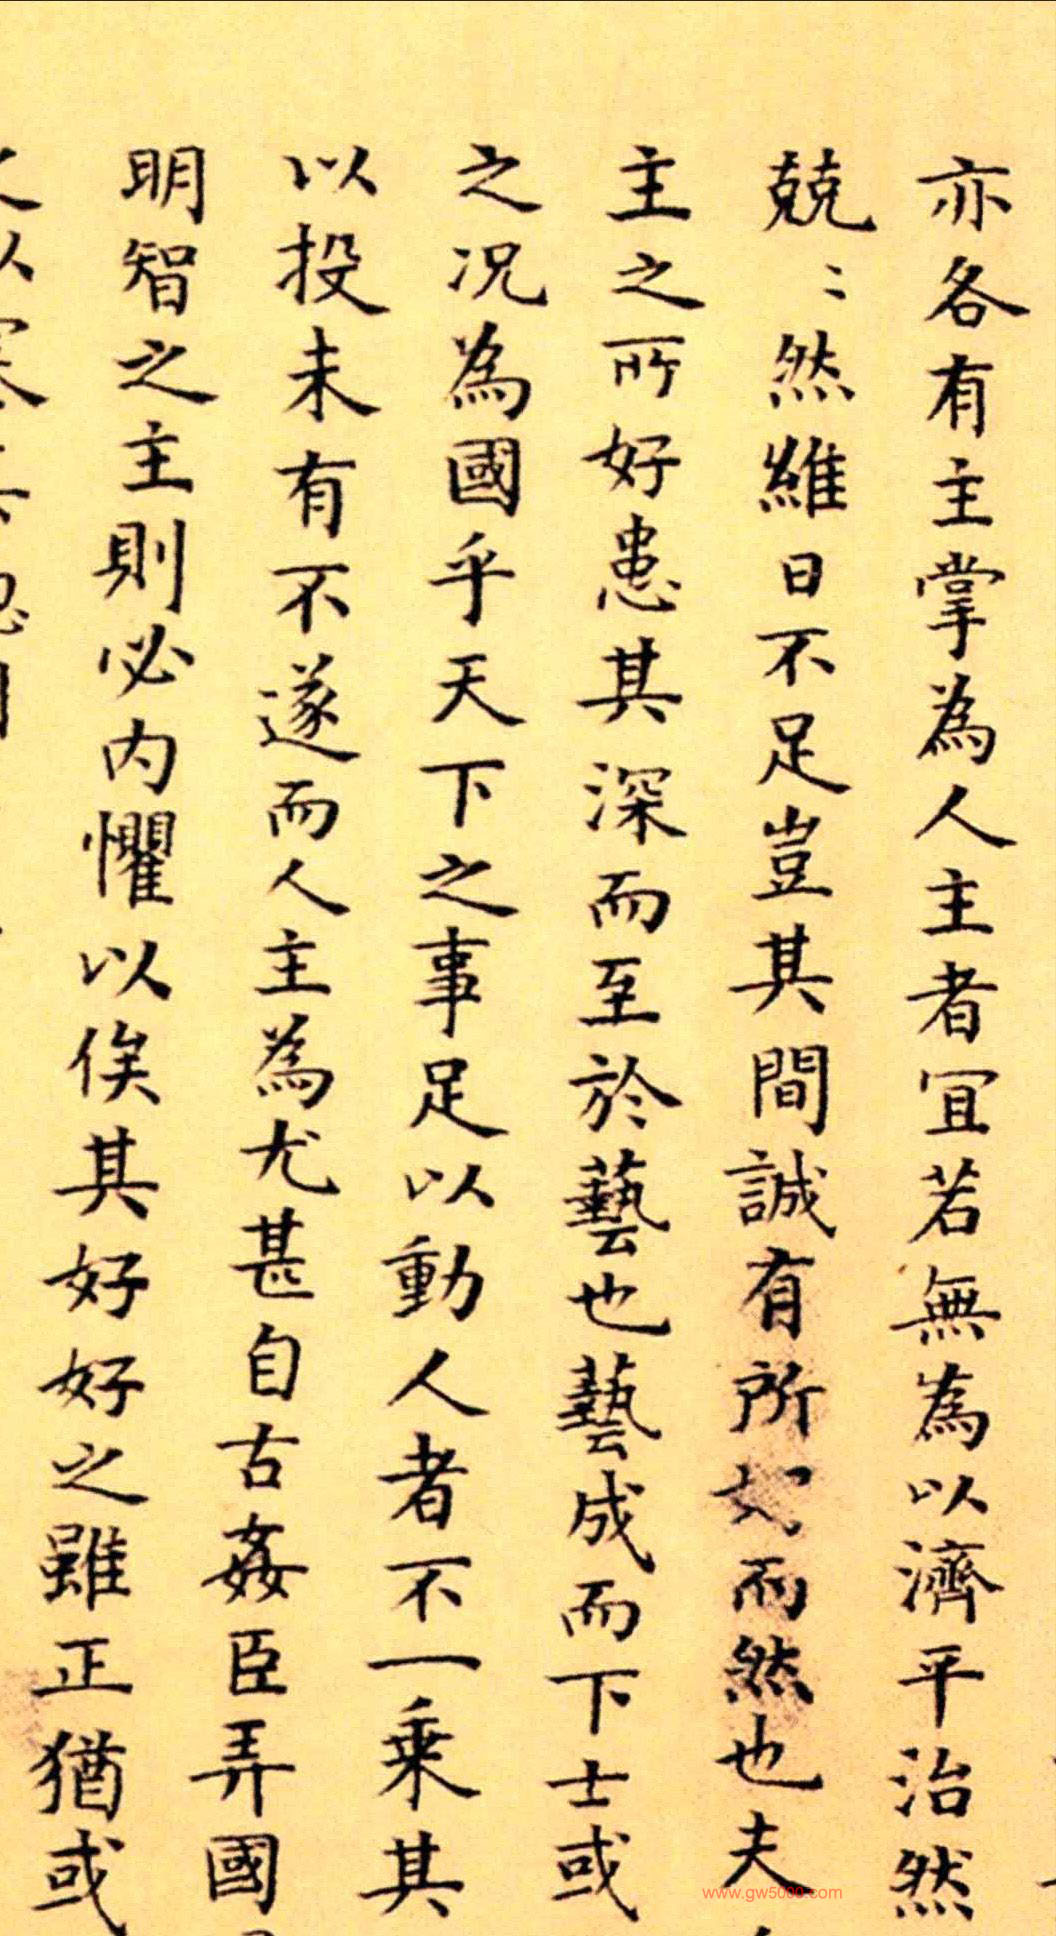 亦各有主掌為人主者宜若無為以濟平治然
兢〻然維日不足豈其間誠有所如而然也夫
主之所好患其深而至於藝也藝成而下士或
之况為國乎天下之事足以動人者不一乗其
以投未有不遂而人主為尤甚自古姦臣弄國
明智之主則必内懼以俟其好好之雖正猶或
www.gw5000.com